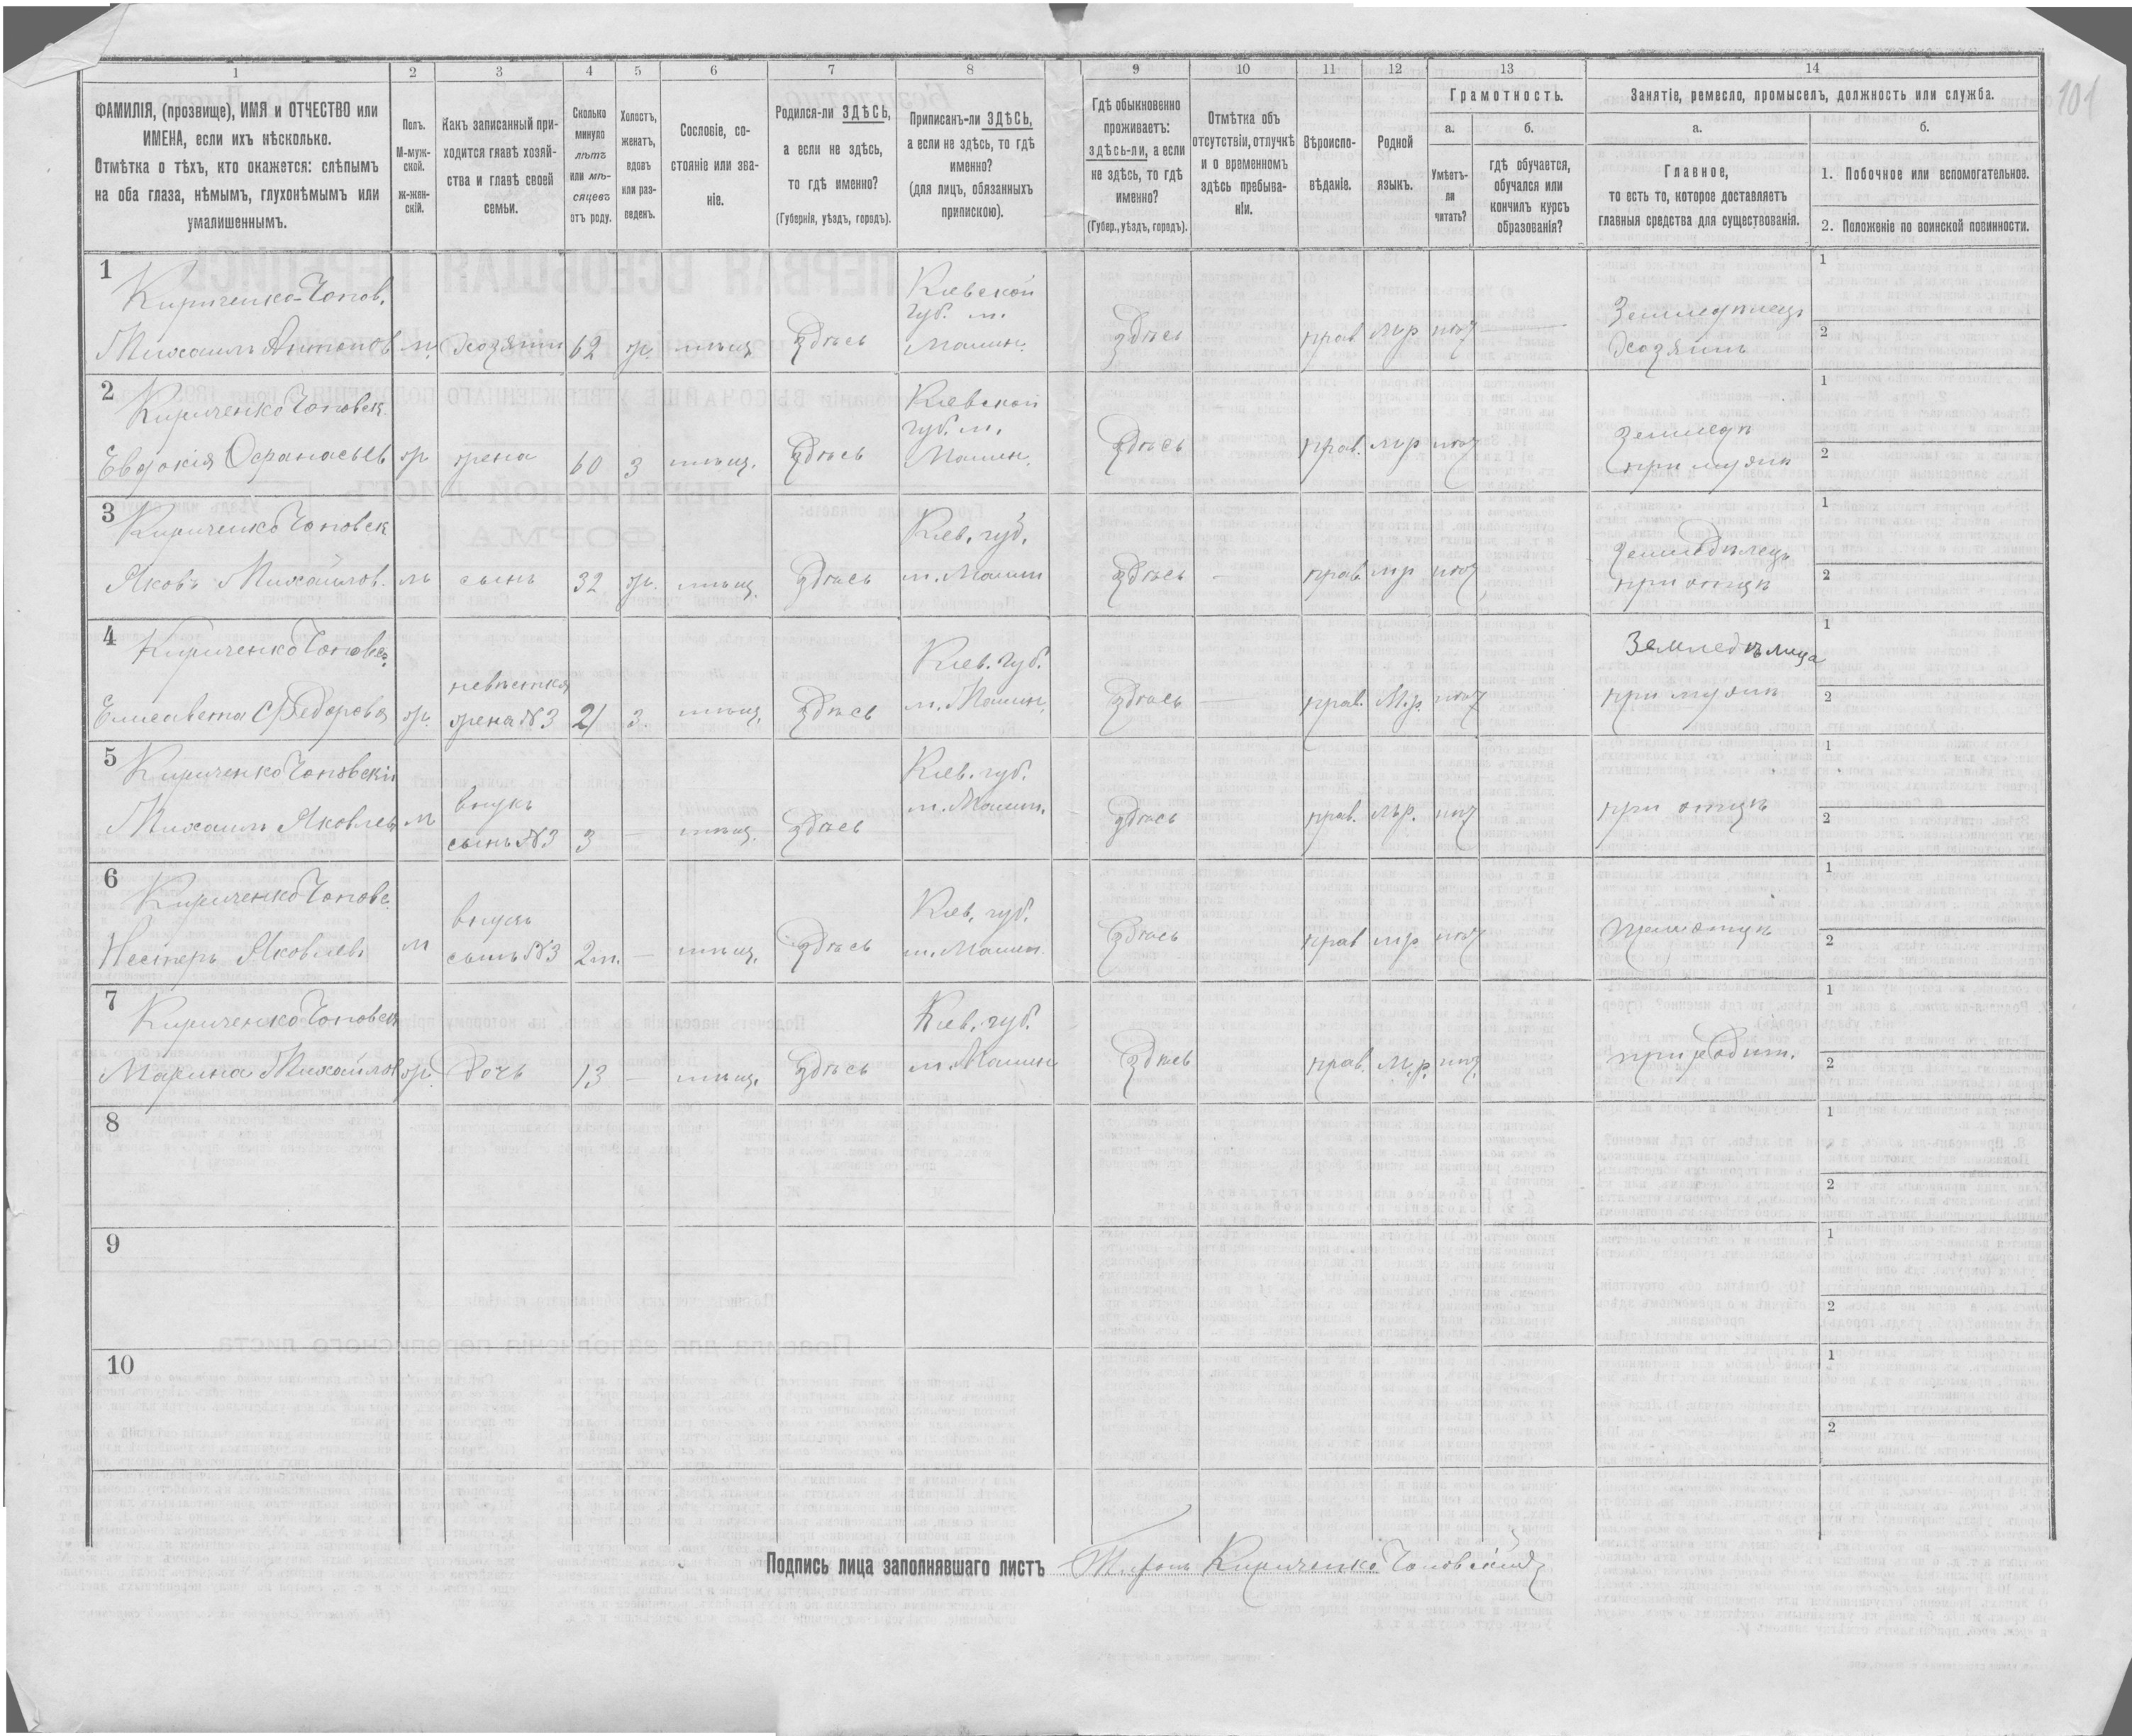 101
1 2 3 4 5 6 7 8 9 10 11 12 13 14
ФАМИЛІЯ, (прозвище), ИМЯ и ОТЧЕСТВО или
ИМЕНА, если ихъ нѣсколько.
Отмѣтка о тѣхъ, кто окажется: слѣпымъ
на оба глаза, нѣмымъ, глухонѣмымъ или
умалишеннымъ.
Полъ.
М-муж-
ской.
ж-жен-
скій.
Какъ записанный при-
ходится главѣ хозяй-
ства и главѣ своей
семьи.
Сколько
минуло
лѣтъ
или мѣ-
сяцевъ
отъ роду.
Холостъ,
женатъ,
вдовъ
или раз-
веденъ.
Сословіе, со-
стояніе или зва-
ніе.
Родился-ли ЗДѢСЬ,
а если не здѣсь,
то гдѣ именно?
(Губернія, уѣздъ, городъ).
Приписанъ-ли ЗДѢСЬ,
а если не здѣсь, то гдѣ
именно?
(для лицъ, обязанныхъ
припискою).
Гдѣ обыкновенно
проживаетъ:
здѣсь-ли, а если
не здѣсь, то гдѣ
именно?
(Губер., уѣздъ, городъ).
Отмѣтка объ
отсутствіи, отлучкѣ
и о временномъ
здѣсь пребыва-
ніи.
Вѣроиспо-
вѣданіе.
Родной
языкъ.
Грамотность.
а.
Умѣетъ-
ли
читать?
б.
гдѣ обучается,
обучался или
кончилъ курсъ
образованія?
Занятіе, ремесло, промыселъ, должность или служба.
а.
Главное,
то есть то, которое доставляетъ
главныя средства для существованія.
б.
1. Побочное или вспомогательное.
2. Положеніе по воинской повинности.
1
Кириченко-Чопов.
Михаилъ Антонов м. Хозяинъ 62 ж. мѣщ здѣсь
Кіевской
губ. м.
Малин.
здѣсь прав мр нѣт
Земледѣлецъ
Хозяинъ
1
2
2
Кириченко Чоповск.
Евдокія Офанасьев ж жена 60 з мѣщ. здѣсь
Кіевской
губ. м.
Малин.
здѣсь прав. мр нѣт
Земледѣ
при мужѣ
1
2
3
Кириченко Чоповск
Яковъ Михайлов. м сынъ 32 ж. мѣщ. здѣсь
Кіев. губ.
м. Малин
здѣсь прав. мр нѣт
земледѣлецъ
при отцѣ
1
2
4
Кириченко Чоповс.
Елисавета Федорова ж.
невѣстка
жена №3 21 з. мѣщ. здѣсь
Кіев. губ.
м. Малин.
здѣсь прав. М.р. нѣт
Земледѣлица
при мужѣ
1
2
5
Кириченко Чоповскій
Михаилъ Яковлев м
внукъ
сынъ №3 3 — мѣщ. здѣсь
Кіев. губ.
м. Малин.
здѣсь прав. мр. нѣт
при отцѣ
1
2
6
Кириченко Чоповс.
Нестеръ Яковлев. м
внукъ
сынъ №3 2 м. — мѣщ. здѣсь
Кіев. губ.
м. Малин.
здѣсь прав мр. нѣт
при отцѣ
1
2
7
Кириченко Чоповск
Марина Михайлов ж. дочь 13 — мѣщ. здѣсь
Кіев. губ.
м. Малин
здѣсь прав. М.р. нѣт.
при родит.
1
2
8
1
2
9
1
2
10
1
2
Подпись лица заполнявшаго листъ Кириченко Чоповскій